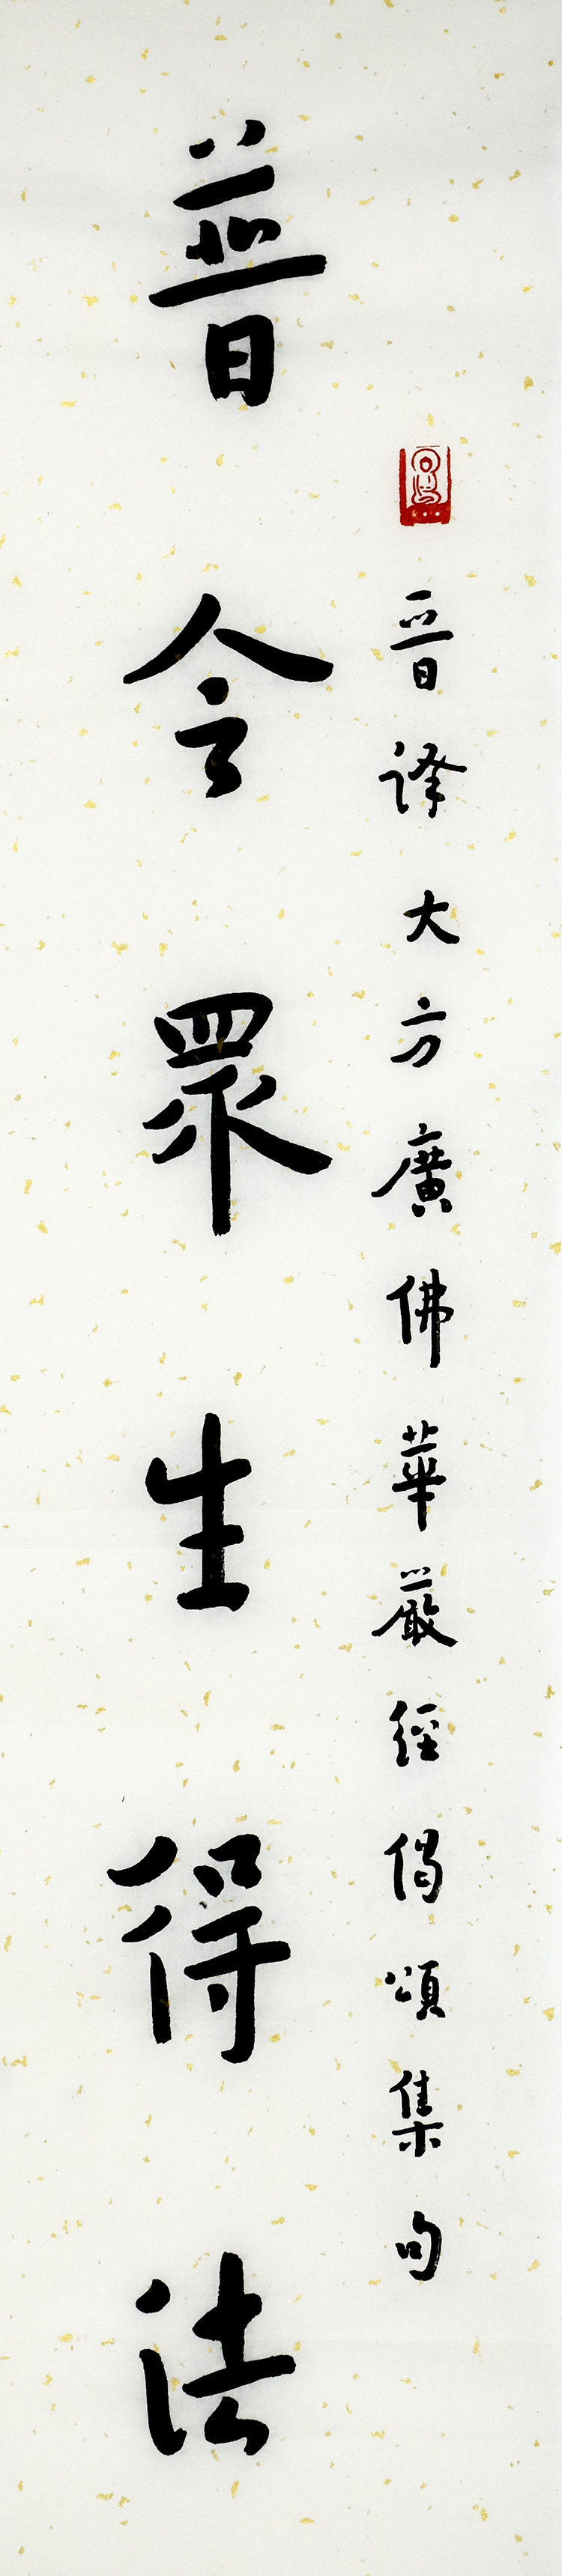 晉譯大方廣佛華嚴經偈頌集句
普令眾生得法